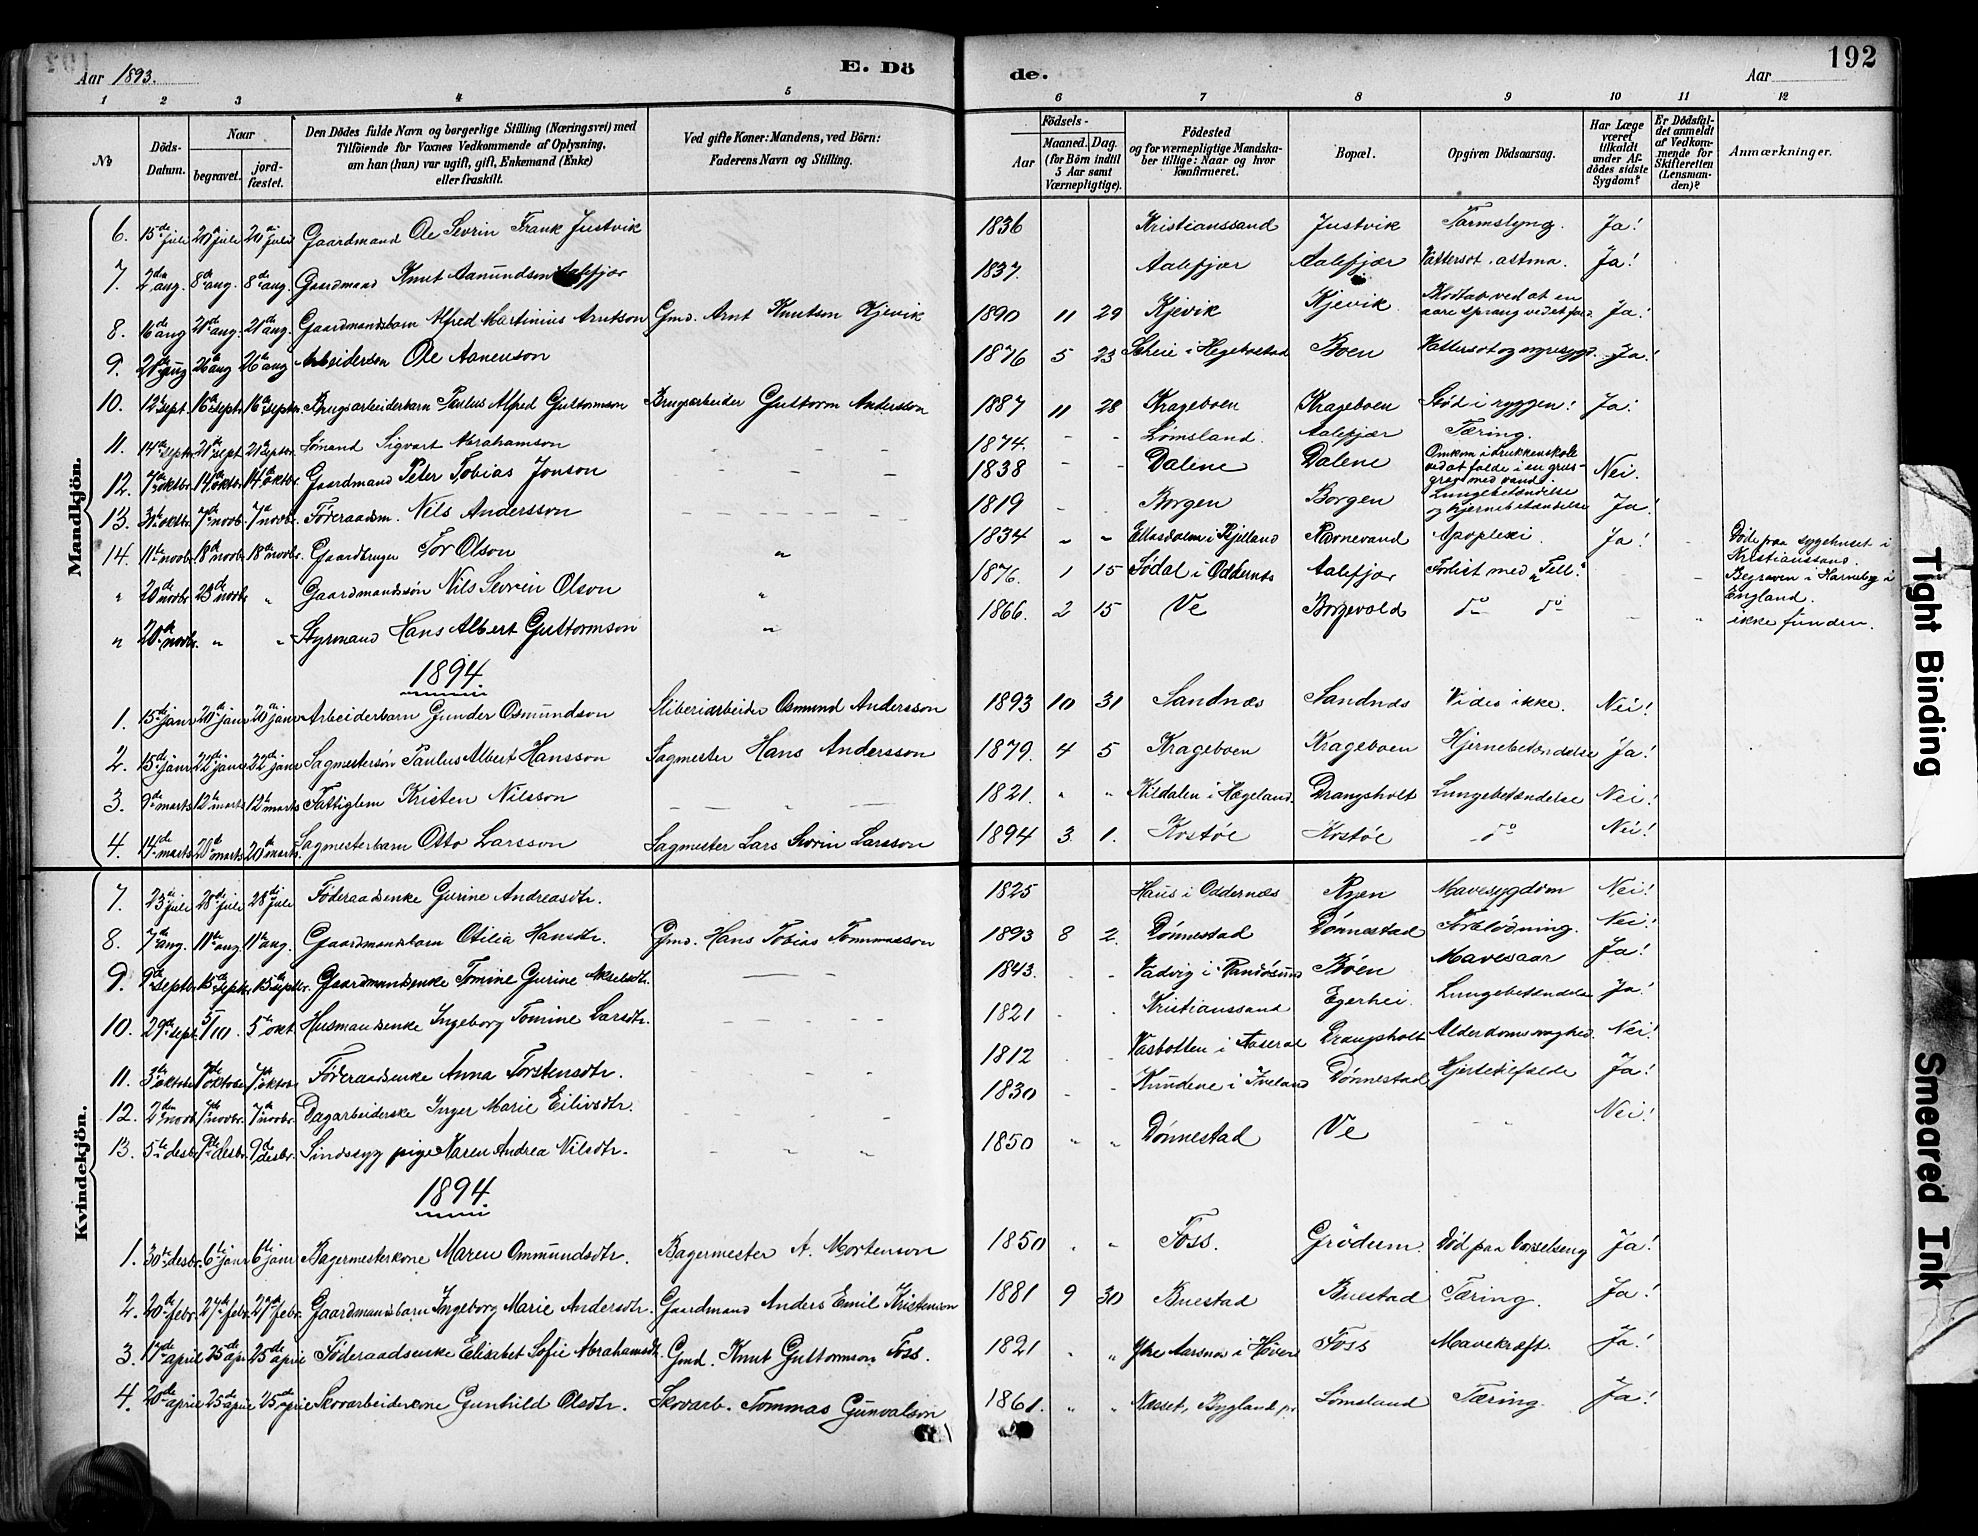 Aar 1893.
E. Dö
de.
Aar
192
1 2 3 4 5 6 7 8 9 10 11 12
№
Döds-Datum.
Naar
begravet.
jord-fæstet.
Den Dödes fulde Navn og borgerlige Stilling (Næringsvei) med
Tilföiende for Voxnes Vedkommende af Oplysning,
om han (hun) var ugift, gift, Enkemand (Enke)
eller fraskilt.
Ved gifte Koner: Mandens, ved Börn:
Faderens Navn og Stilling.
Födsels-
Aar
Maaned. Dag.
(for Börn indtil
5 Aar samt
Værnepligtige).
Födested
og for værnepligtige Mandska-
ber tillige: Naar og hvor
konfirmeret.
Bopæl.
Opgiven Dödsaarsag.
Har Læge
været
tilkaldt
under Af-
dödes sidste
Sygdom?
Er Dödsfal-
det anmeldt
af Vedkom-
mende for
Skifteretten
(Lensman-
den)?
Anmærkninger.
Mandkjön.
6. 15de juli 20de juli 20de juli Gaardmand Ole Sevrin Frank Justvik 1836 Kristianssand Justvik Tarmslyng. Ja!
7. 2den aug. 8de aug. 8de aug. Gaardmand Knut Aanundsen Aalefjær 1837. Aalefjær Aalefjær Vattersot, astma. Ja!
8. 16de aug 20de aug. 20de aug. Gaardmandsbarn Alfred Martinius Arntson Gmd. Arnt Knutson Kjevik 1890 11 29 Kjevik Kjevik Blodtab ved at en aare sprang Ja!
9. 20de aug 26de aug 26de aug Arbeidersøn Ole Aanenson 1876 5 23 Skeie i Hegebostad Boen Vattersot og nyresygd. Ja!
10. 12te sept. 16de septr. 16de septr. Brugsarbeiderbarn Paulus Alfred Guttormson Brugsarbeider Guttorm Andersson 1887 11 28 Krageboen Krageboen Stød i ryggen! Ja!
11. 14de septr 20de sept. septbr. Sømand Sigvart Abrahamson - - - - 1874. - - Lømsland. Aalefjær Tæring.
12. 7de oktbr 14de oktbr 14de oktbr. Gaardmand Peter Tobias Jonson - - - - 1838 - - Dalene Dalene Omkom i drukkenskab ved at falde i en grus-grav med vand. Nei.
13. oktbr. 7de novbr. 7de novbr. Føderaadsm. Nils Andersson - - - - 1819 - . Borgen Borgen Lungebetændelse og hjernebetændelse Ja!
14. 11te novbr. 18de novbr. 18de novbr. Gaardbruger Tor Olson " 1834 " " i Bjelland Ravnevand Apoplexi. Ja! Døde paa sygehuset i Kristianssand.
" 20de novbr. 23de novbr " Gaardmandssøn Nils Sevrin Olson " 1876. 1 15 Sødal i Oddernes Aalefjær Forlist med „Tell." Begraven i Harneby i England.
" 20de novbr. " " Styrmand Hans Albert Guttormson " 1866. 2 15 Ve Borgevold do do ikke funden.
1894.
1. 15de janr 20de janr 20de janr Arbeiderbarn Gunder Osmundson Sliberiarbeider Osmund Andersson 1893 10 31 Sandnæs Sandnæs Vides ikke. Nei!
2. 15de janr 22de janr 22de janr Sagmestersøn Paulus Albert Hansson Sagmester Hans Andersson 1879. 4 5 Krageboen Krageboen Hjernebetændelse Ja!
3. 9de marts 12te marts 12te marts Fattiglem Kristen Nilsson - - " - 1821. " " Kildalen i Hægeland. Drangsholt Lungebetændelse Nei!
4. 14de marts 20de marts 20de marts. Sagmesterbarn Otto Larsson Sagmester Lars Sevrin Larsson 1894 3 1. Krstøe Krstøe do Nei!
Kvindekjön.
7. 23de juli 28de juli 28de juli Føderaadsenke Gurine Andreasdtr. 1825 Haus i Oddernæs Ryen Mavesygdom Nei!
8. 7de aug. 11te aug. 11te aug. Gaardmandsbarn Otilia Hansdtr. Gmd. Hans Tobias Tommasson 1893 8 2. Dønnestad Dønnestad Forblødning. Nei!
9. 9de septbr 15de septbr. 15de septbr. Gaardmandsenke Tomine Gurine Akselsdtr. - - - 1843. Vadvig i Randøsund Boen Mavesaar Ja!
10. 29de sept. 5/10. 5te okt. Husmandsenke Ingeborg Tomine Larsdtr. - - - - 1821 Kristianssand Egerhei. Lungebetændelse Ja!
11. 3de oktobr 7de oktobr 7de oktbr. Føderaadsenke Anna Torstensdtr. - - - 1812 Vasbotten i Aaseral Drangsholt Alderdomssvaghed. Nei!
12. 2den novb. 7de novbr. 7de novbr. Dagarbeiderske Inger Marie Eilivsdtr. 1830 Knudene i Iveland Dønnestad Hjertetilfælde Ja!
13. 5te desbr. 9de desbr. 9de desbr. Sindssyg pige Karen Andrea Nilsdtr. 1850 " " Dønnestad Ve " Nei!
1894.
1. 30te desbr. 6te janr 6te janr Bagermesterkone Maren Ommundsdtr. Bagermester A. Mortenson 1850 " " Foss. Grødum. Død paa barselseng Ja!
2. 20de febr. 27de febr. 27de febr. Gaardmandsbarn Ingeborg Marie Andersdtr. Gaardmand Anders Emil Kristenson 1881 9 30 Buestad Buestad Tæring. Ja!
3. 17de april 25de apr. 25de april Føderaadsenke Elisabet Sofie Abrahamsdtr. Gmd. Knut Guttormson Foss. 1821 " " Ytre Aarsnes i Foss Mavekræft. Ja!
4. 20de april 25de april 25de april Skovarbeiderkone Gunhild Olsdtr. Skovarb. Tommas Gunvalson 1861. " " Næset, Bygland pr. Lømsland Tæring. Ja!
Tight Binding
Smeared Ink